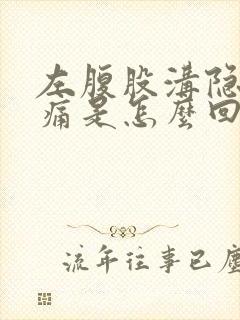 左腹股溝隐
痛是怎麼回
流年往事已塵